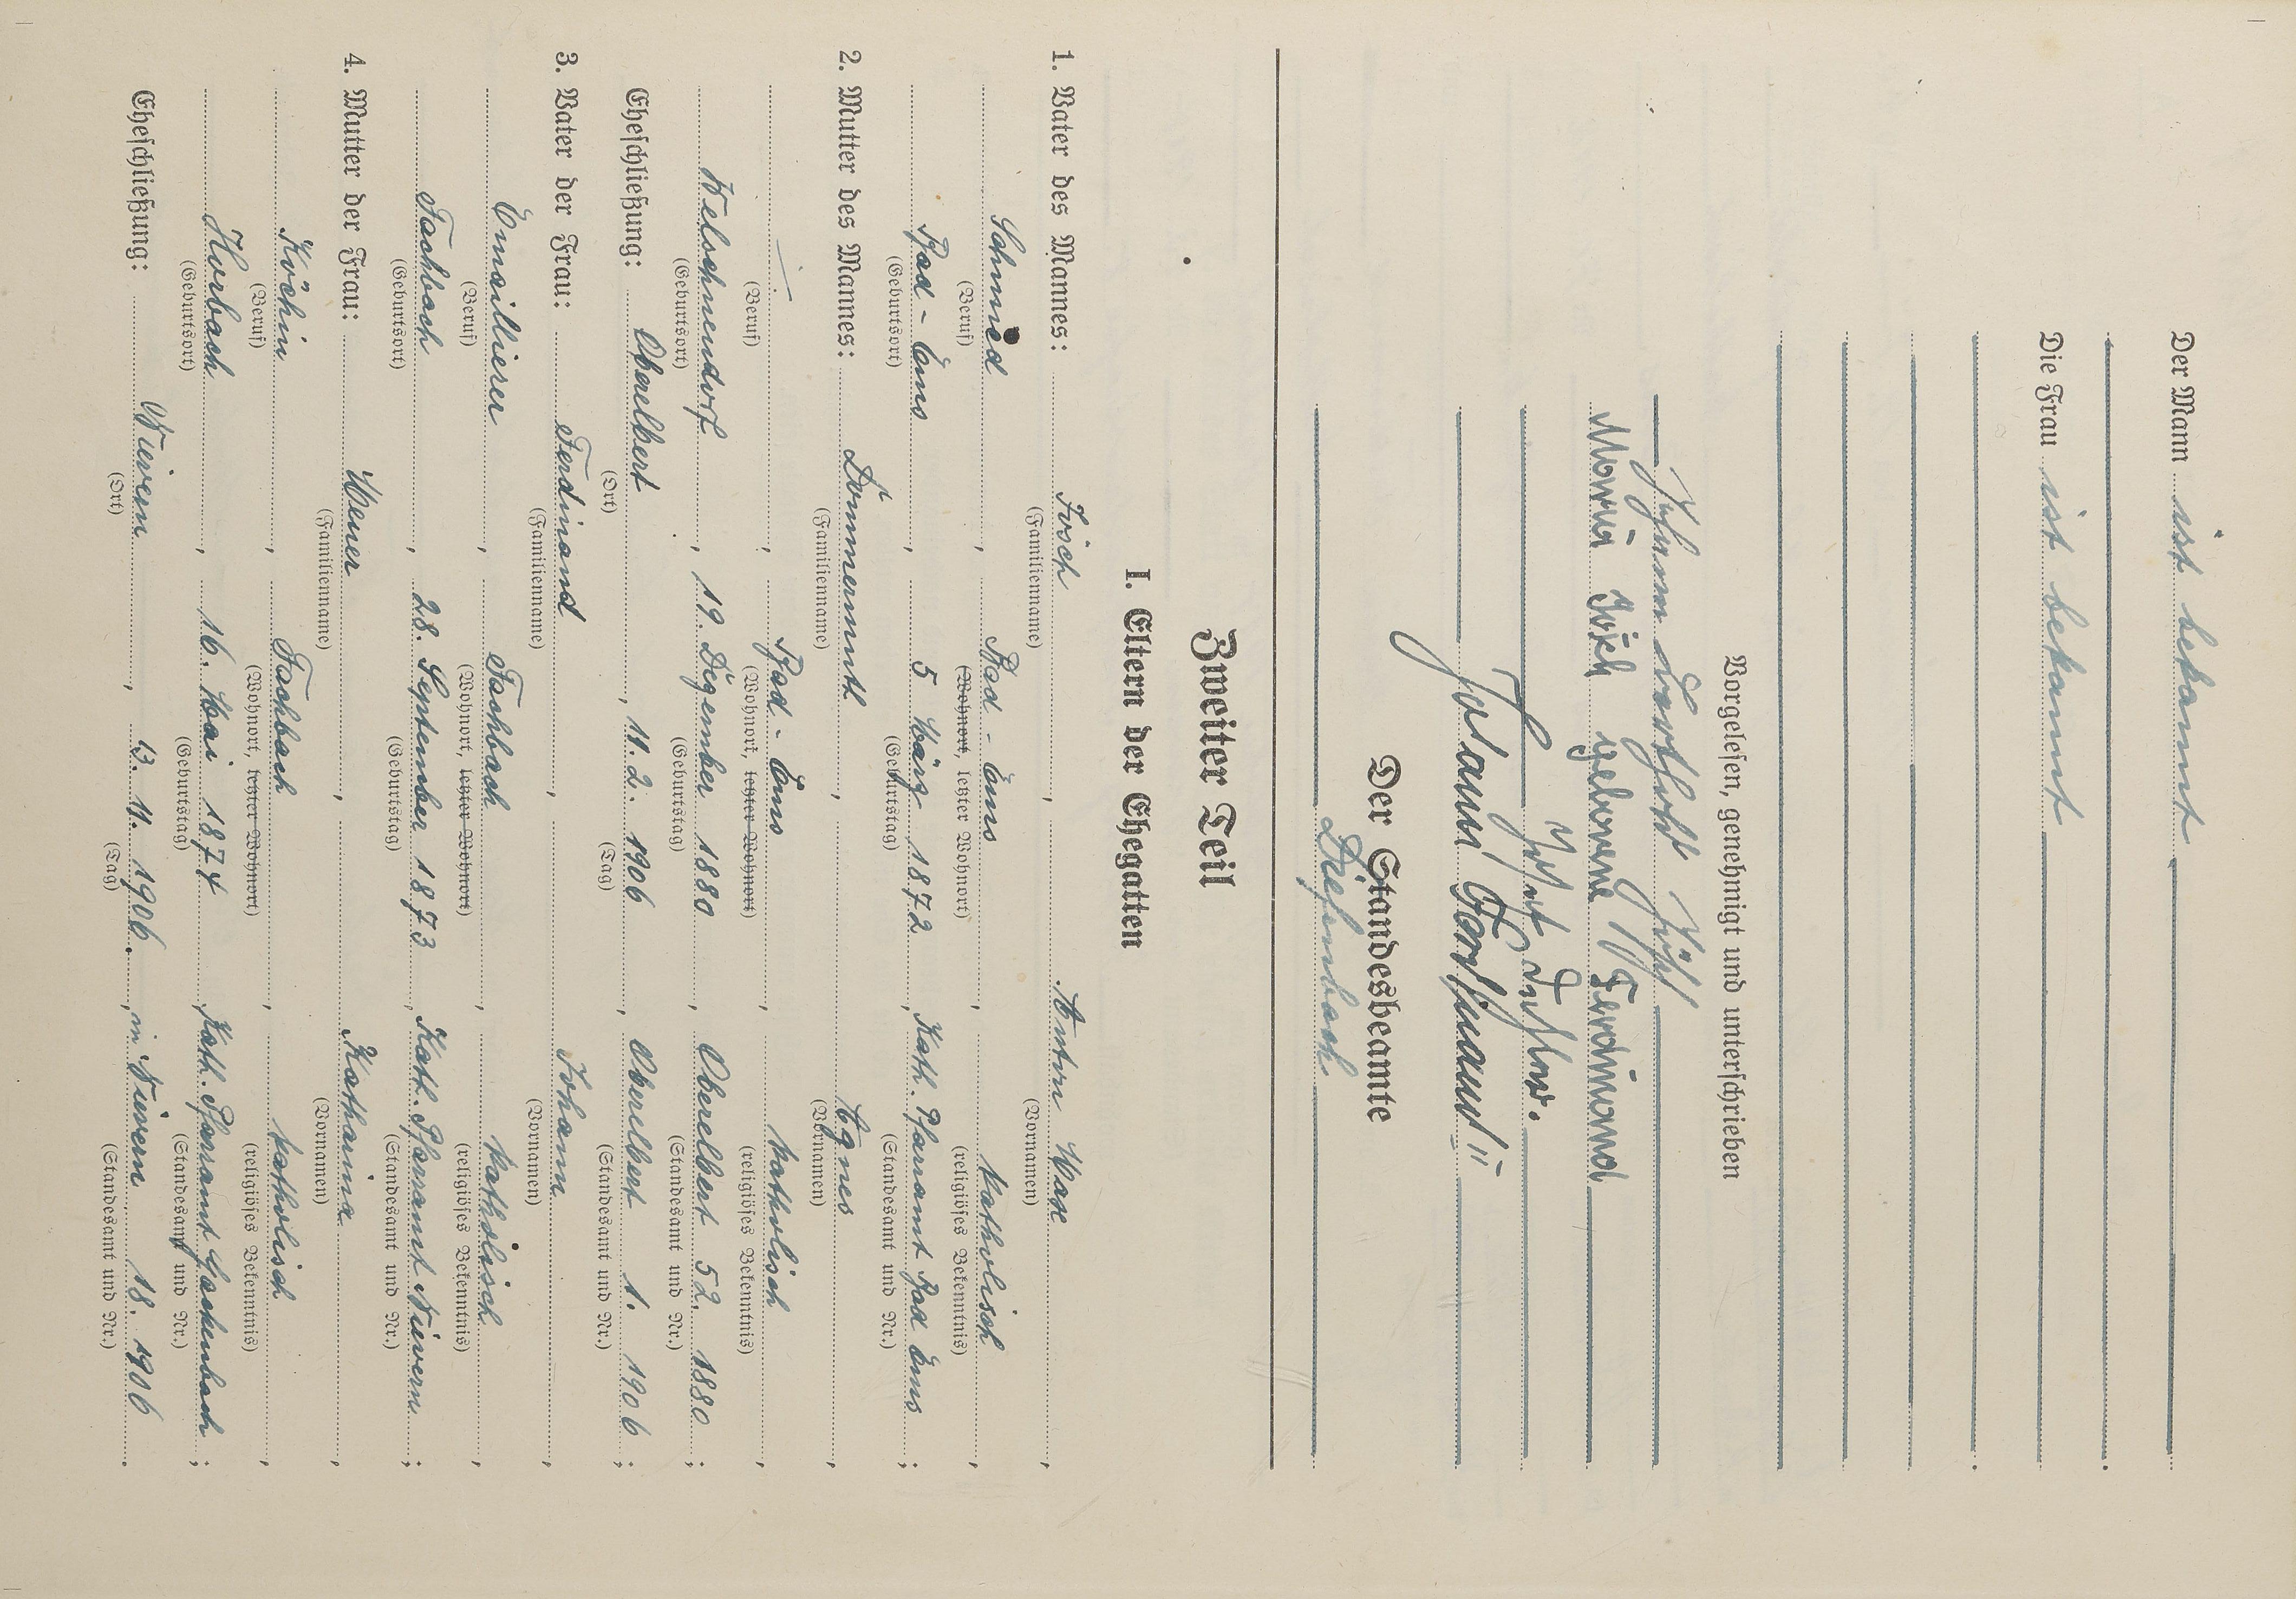 Der Mann ist bekannt
Die Frau ist bekannt
Vorgelesen, genehmigt und unterschrieben
Maria Jösch geborene Ferdinand
Johann Ferdinand II
Der Standesbeamte
Diefenbach
Zweiter Teil
I. Eltern der Ehegatten
1. Vater des Mannes: Jösch, Anton Max,
(Familienname) (Vornamen)
Schmied, Bad-Ems, katholisch,
(Beruf) (Wohnort, letzter Wohnort) (religiöses Bekenntnis)
Bad-Ems, 5 März 1872, Kath. Pfarramt Bad Ems;
(Geburtsort) (Geburtstag) (Standesamt und Nr.)
2. Mutter des Mannes: Dommermuth, Agnes,
(Familienname) (Vornamen)
—, Bad-Ems, katholisch,
(Beruf) (Wohnort, letzter Wohnort) (religiöses Bekenntnis)
Welschneudorf, 19. Dezember 1880, Oberelbert 52. 1880;
(Geburtsort) (Geburtstag) (Standesamt und Nr.)
Eheschließung: Oberelbert, 11. 2. 1906, Oberelbert 1. 1906;
(Ort) (Tag) (Standesamt und Nr.)
3. Vater der Frau: Ferdinand, Johann,
(Familienname) (Vornamen)
Emaillierer, Fachbach, katholisch,
(Beruf) (Wohnort, letzter Wohnort) (religiöses Bekenntnis)
Fachbach, 28. September 1873, Kath. Pfarramt Nievern;
(Geburtsort) (Geburtstag) (Standesamt und Nr.)
4. Mutter der Frau: Katharina,
(Familienname) (Vornamen)
Köchin, Fachbach, katholisch,
(Beruf) (Wohnort, letzter Wohnort) (religiöses Bekenntnis)
Horbach, 16. Mai 1874, Kath. Pfarramt Gackenbach;
(Geburtsort) (Geburtstag) (Standesamt und Nr.)
Eheschließung: Nievern, 13. 11. 1906., in Nievern 18. 1906.
(Ort) (Tag) (Standesamt und Nr.)